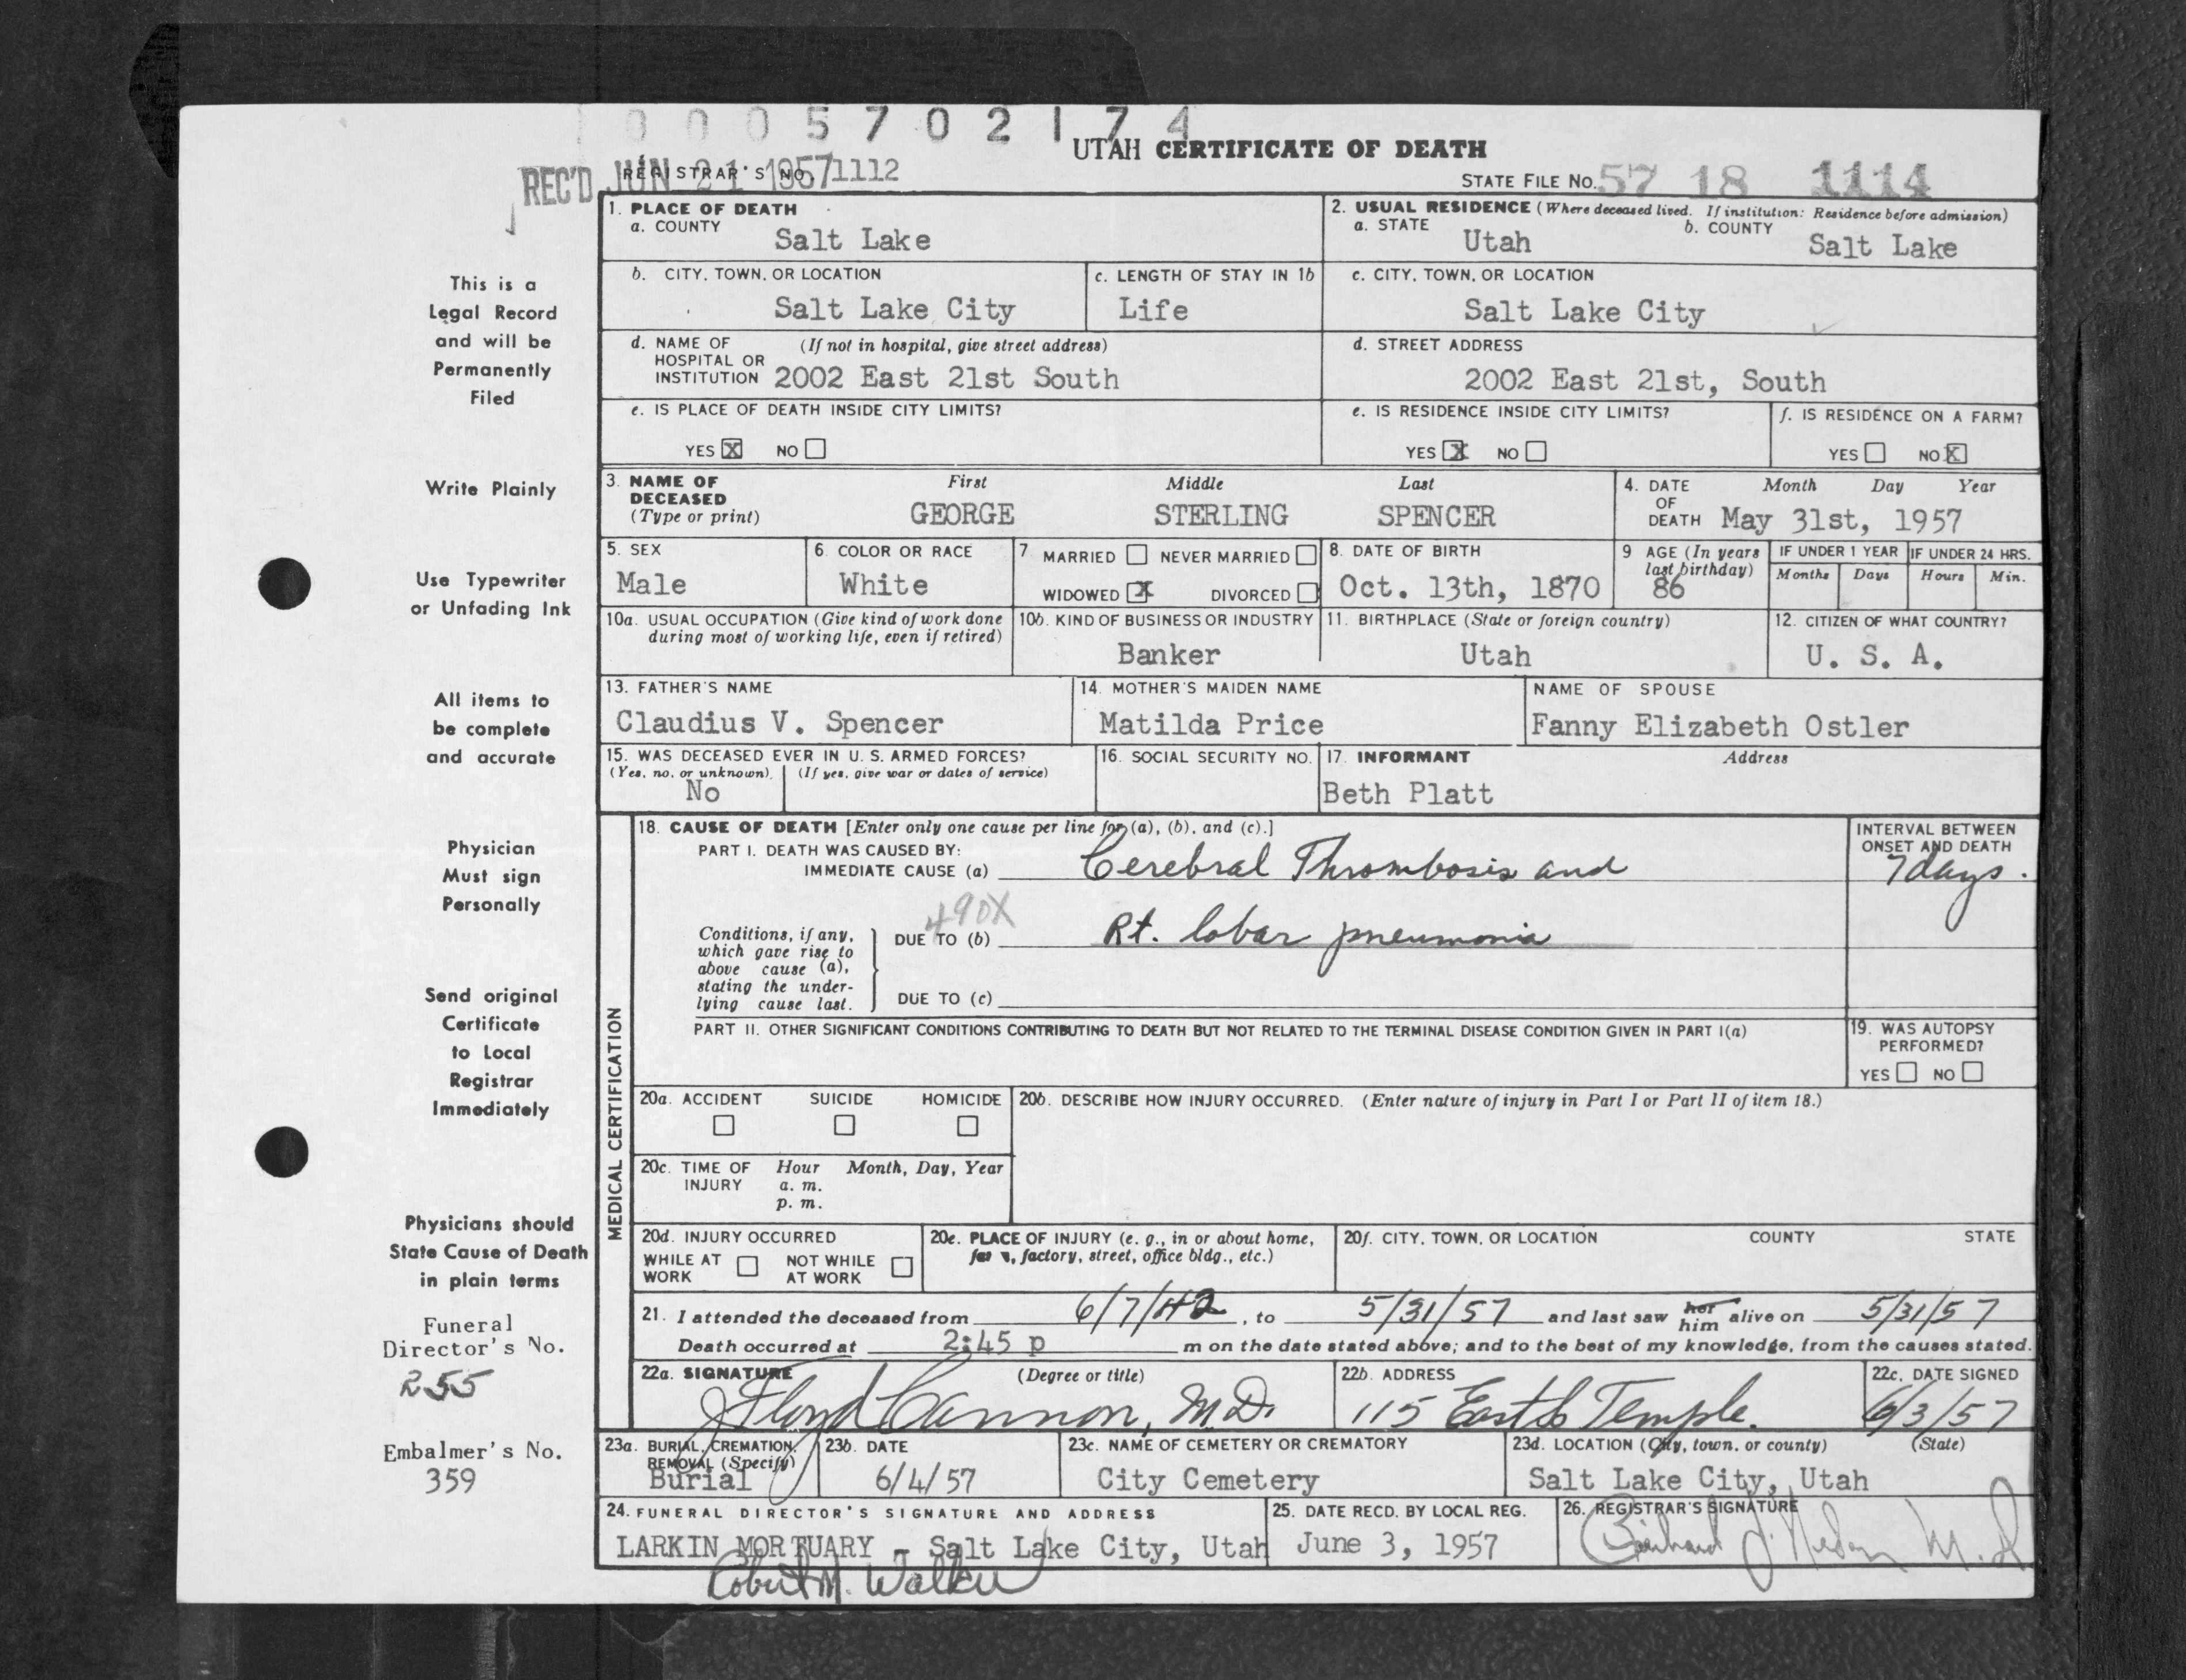 0 0 0 5 7 0 2 1 7 4
UTAH CERTIFICATE OF DEATH
REC'D JUN 21 1957
REGISTRAR'S NO. 1112
STATE FILE NO. 57 18 1114
This is a
Legal Record
and will be
Permanently
Filed
Write Plainly
Use Typewriter
or Unfading Ink
All items to
be complete
and accurate
Physician
Must sign
Personally
Send original
Certificate
to Local
Registrar
Immediately
Physicians should
State Cause of Death
in plain terms
Funeral
Director's No.
255
Embalmer's No.
359
1. PLACE OF DEATH
a. COUNTY
Salt Lake
2. USUAL RESIDENCE (Where deceased lived. If institution: Residence before admission)
a. STATE
Utah
b. COUNTY
Salt Lake
b. CITY, TOWN, OR LOCATION
Salt Lake City
c. LENGTH OF STAY IN 1b
Life
c. CITY, TOWN, OR LOCATION
Salt Lake City
d. NAME OF (If not in hospital, give street address)
HOSPITAL OR
INSTITUTION 2002 East 21st South
d. STREET ADDRESS
2002 East 21st, South
e. IS PLACE OF DEATH INSIDE CITY LIMITS?
YES X NO
e. IS RESIDENCE INSIDE CITY LIMITS?
YES X NO
f. IS RESIDENCE ON A FARM?
YES NO X
3. NAME OF
DECEASED
(Type or print)
First Middle Last
GEORGE STERLING SPENCER
4. DATE Month Day Year
OF
DEATH May 31st, 1957
5. SEX
Male
6. COLOR OR RACE
White
7. MARRIED NEVER MARRIED
WIDOWED X DIVORCED
8. DATE OF BIRTH
Oct. 13th, 1870
9 AGE (In years
last birthday)
86
IF UNDER 1 YEAR
Months Days
IF UNDER 24 HRS.
Hours Min.
10a. USUAL OCCUPATION (Give kind of work done
during most of working life, even if retired)
10b. KIND OF BUSINESS OR INDUSTRY
Banker
11. BIRTHPLACE (State or foreign country)
Utah
12. CITIZEN OF WHAT COUNTRY?
U. S. A.
13. FATHER'S NAME
Claudius V. Spencer
14. MOTHER'S MAIDEN NAME
Matilda Price
NAME OF SPOUSE
Fanny Elizabeth Ostler
15. WAS DECEASED EVER IN U. S. ARMED FORCES?
(Yes, no, or unknown) (If yes, give war or dates of service)
No
16. SOCIAL SECURITY NO.
17. INFORMANT Address
Beth Platt
MEDICAL CERTIFICATION
18. CAUSE OF DEATH [Enter only one cause per line for (a), (b), and (c).]
PART I. DEATH WAS CAUSED BY:
IMMEDIATE CAUSE (a) Cerebral Thrombosis and
INTERVAL BETWEEN
ONSET AND DEATH
7 days.
490X
Conditions, if any,
which gave rise to
above cause (a),
stating the under-
lying cause last.
DUE TO (b) Rt. lobar pneumonia
DUE TO (c)
PART II. OTHER SIGNIFICANT CONDITIONS CONTRIBUTING TO DEATH BUT NOT RELATED TO THE TERMINAL DISEASE CONDITION GIVEN IN PART I(a)
19. WAS AUTOPSY
PERFORMED?
YES NO
20a. ACCIDENT SUICIDE HOMICIDE
20b. DESCRIBE HOW INJURY OCCURRED. (Enter nature of injury in Part I or Part II of item 18.)
20c. TIME OF Hour Month, Day, Year
INJURY a. m.
p. m.
20d. INJURY OCCURRED
WHILE AT NOT WHILE
WORK AT WORK
20e. PLACE OF INJURY (e. g., in or about home,
factory, street, office bldg., etc.)
20f. CITY, TOWN, OR LOCATION COUNTY STATE
21. I attended the deceased from 6/7/42, to 5/31/57 and last saw her him alive on 5/31/57
Death occurred at 2:45 p m on the date stated above; and to the best of my knowledge, from the causes stated.
22a. SIGNATURE (Degree or title)
J Floyd Cannon, M.D.
22b. ADDRESS
115 East So Temple.
22c. DATE SIGNED
6/3/57
23a. BURIAL, CREMATION,
REMOVAL (Specify)
Burial
23b. DATE
6/4/57
23c. NAME OF CEMETERY OR CREMATORY
City Cemetery
23d. LOCATION (City, town, or county) (State)
Salt Lake City, Utah
24. FUNERAL DIRECTOR'S SIGNATURE AND ADDRESS
LARKIN MORTUARY - Salt Lake City, Utah
Robert M. Walker
25. DATE RECD. BY LOCAL REG.
June 3, 1957
26. REGISTRAR'S SIGNATURE
M.D